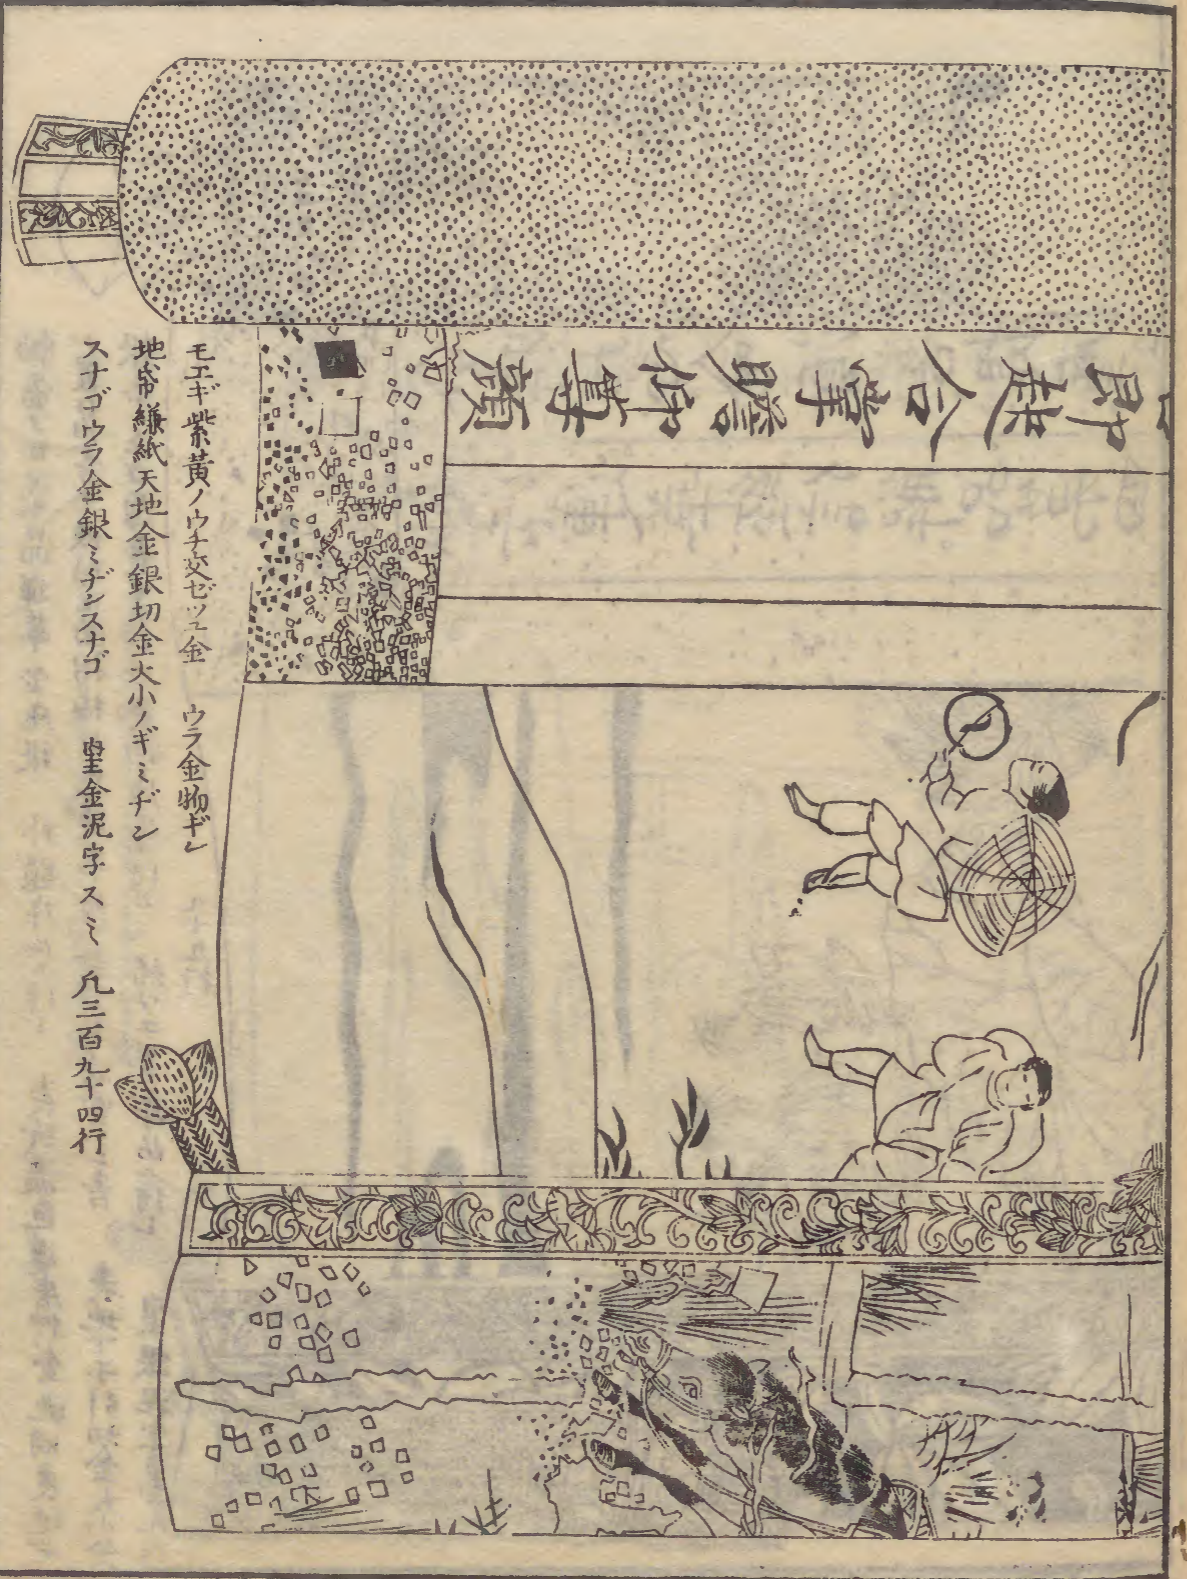 即起合掌瞻仰尊顔
モエギ紫黄ノウチ交ゼツユ金 ウラ金物ギン
地帋縑紙天地金銀切金大小ノギミヂン
スナゴウラ金銀ミヂンスナゴ 金泥字スミ 凡三百九十四行